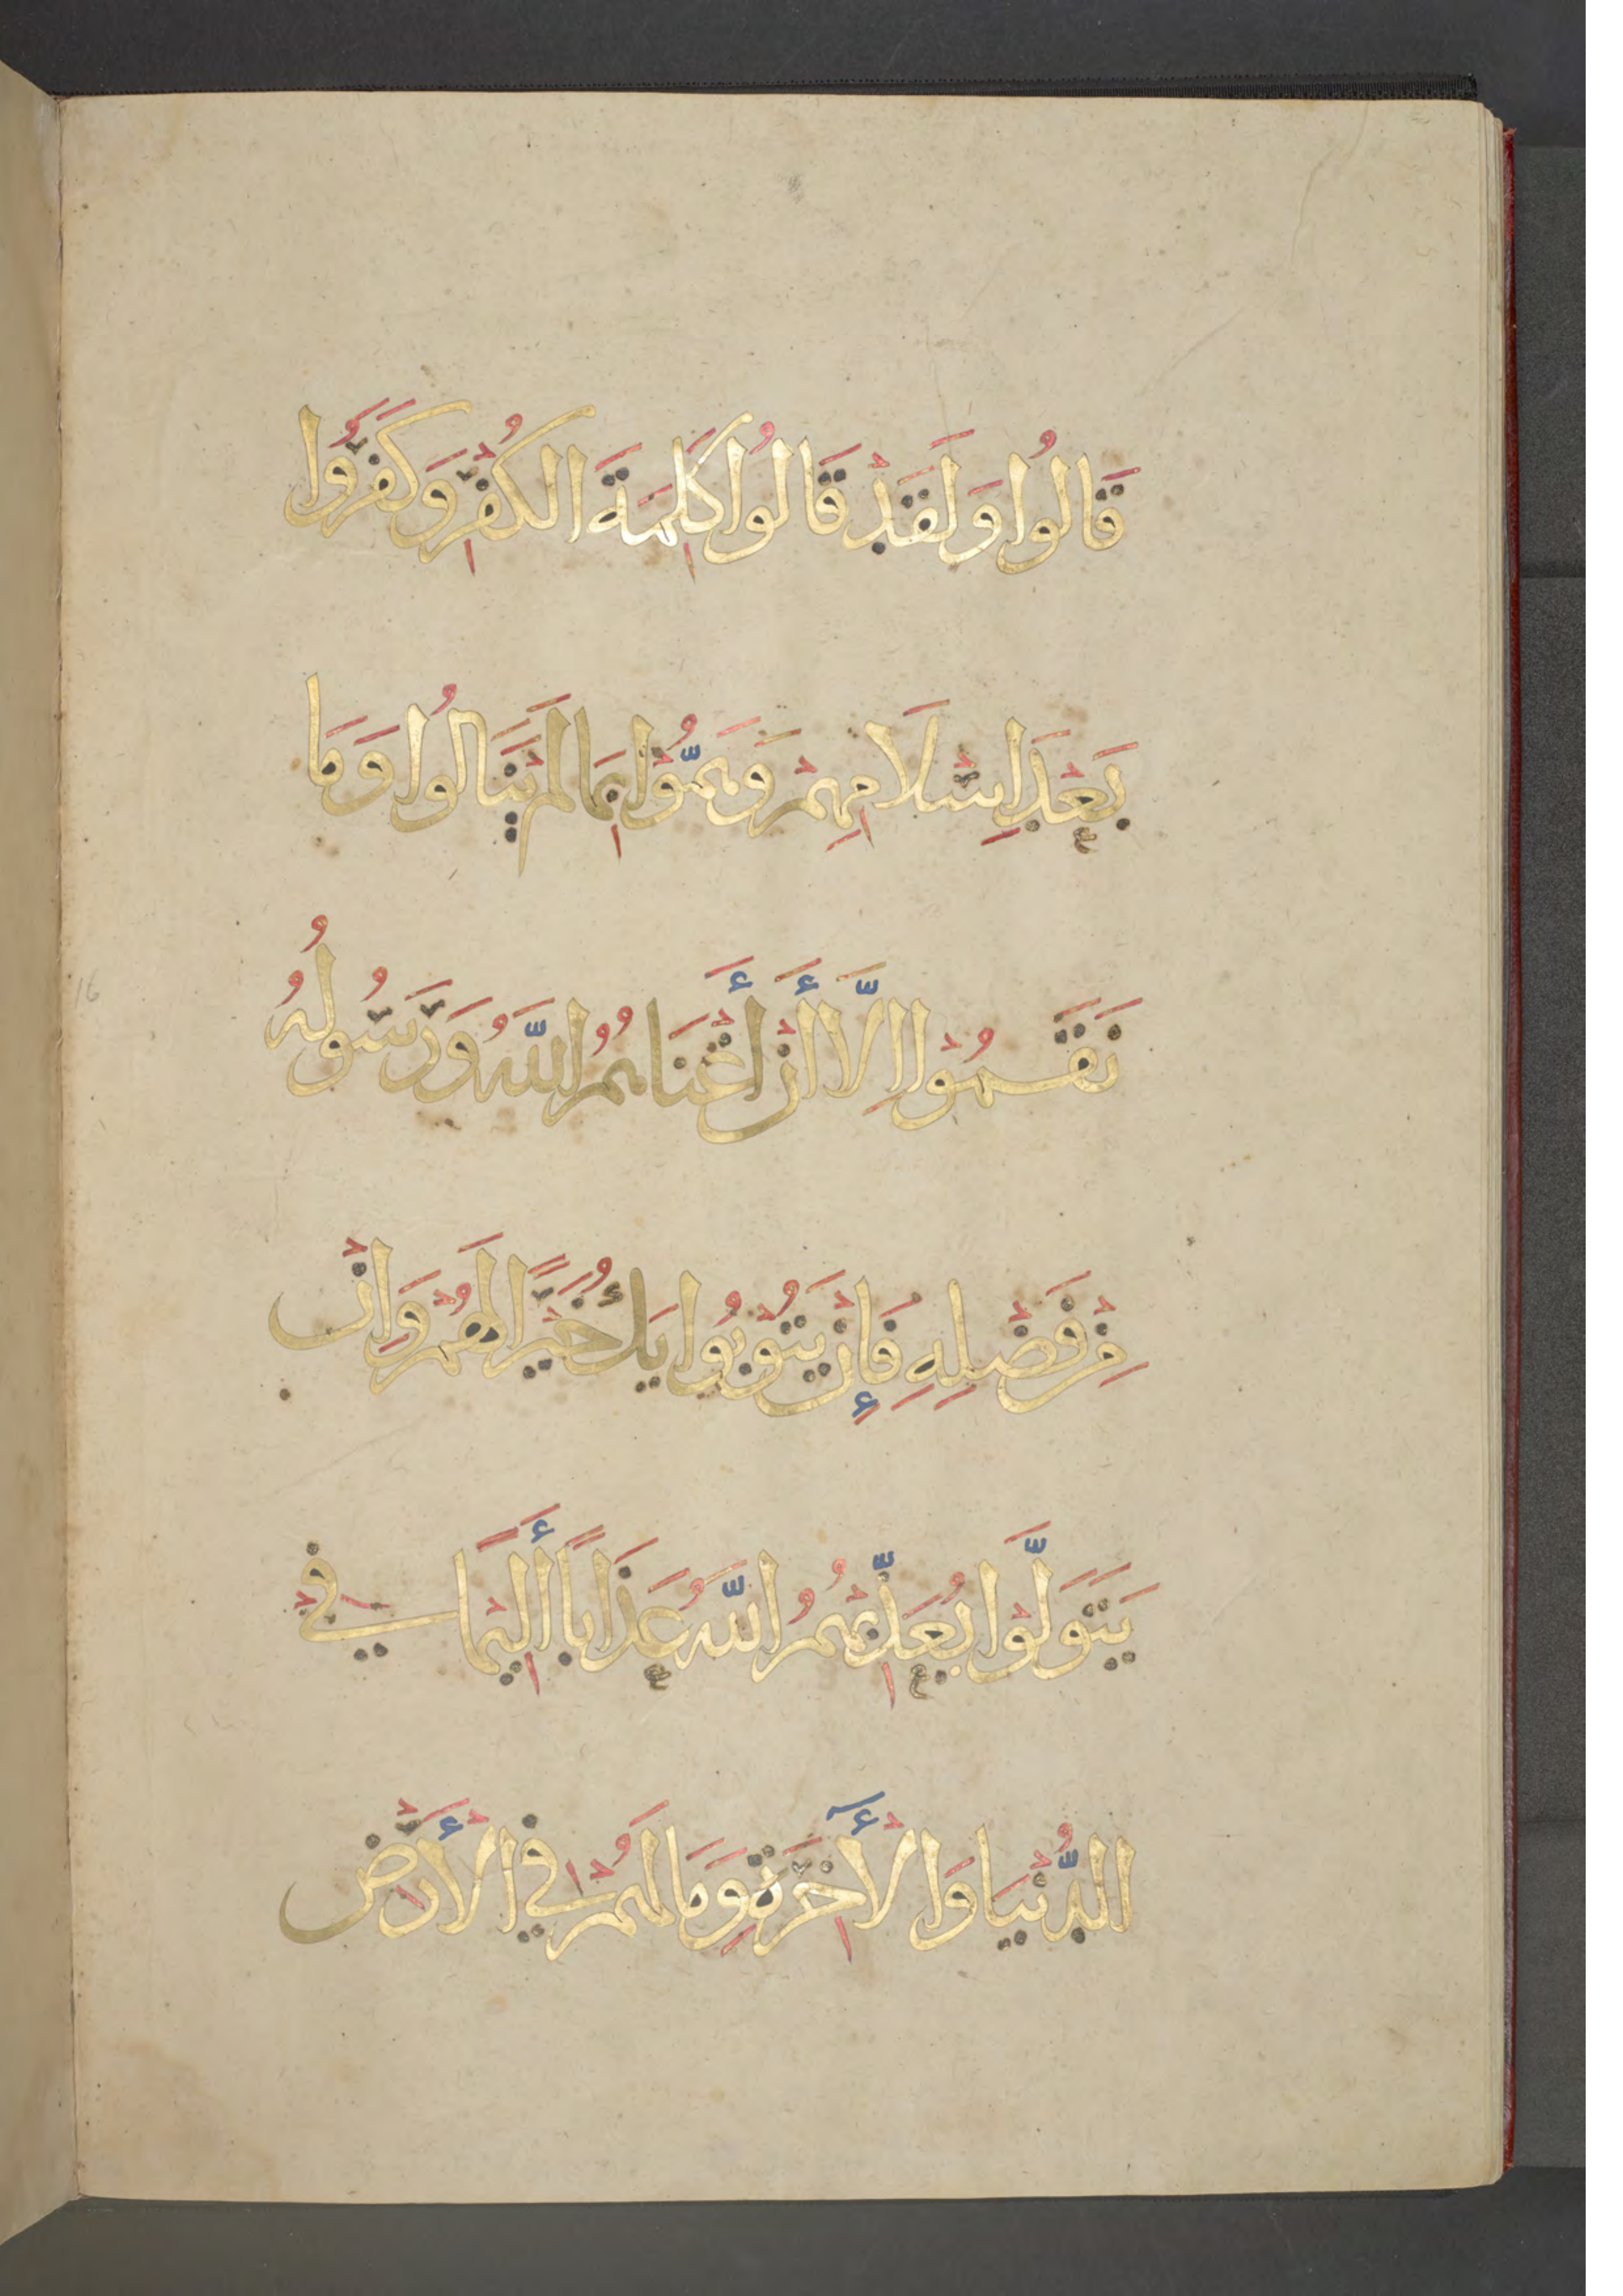 قَالُوا وَلَقَدْ قَالُوا كَلِمَةَ الكُفْرِ وَكَفَرُوا
بَعْدَ اِسْلَامِهِمْ وَهَمُّوْا بِمَا لَمْ يَنَالُوا وَمَا
نَقَمُوْا اِلَّا أَنْ أَغْنَاهُمُ اللَّهُ وَرَسُولُهُ
مِنْ فَضْلِهِ فَإِنْ يَتُوْبُوا يَكُ خَيْرًا لَهُمْ وَاِنْ
يَتَوَلَّوْا يُعَذِّبْهُمُ اللَّهُ عَذَابًا أَلِيْمًا فِي
الدُّنْيَا وَالْأٓخِرَةِ وَمَا لَهُمْ فِي الْأَرْضِ
16